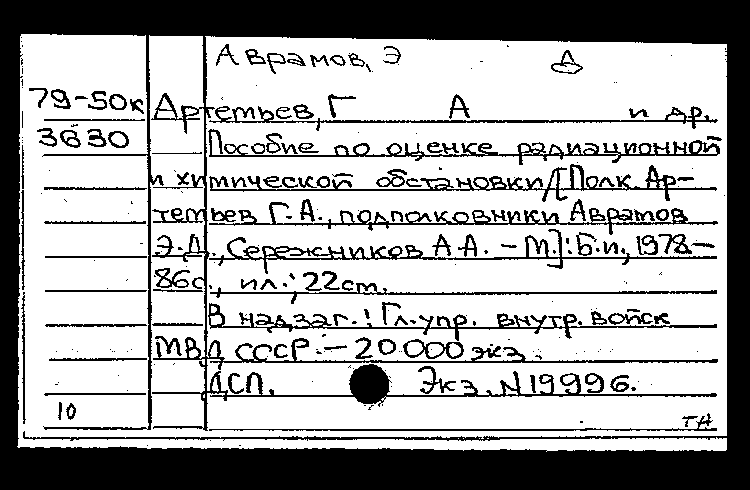 Аврамов, Э Д
79-50к Артемьев, Г А и др.
3630 Пособие по оценке радиационной
и химической обстановки/[Полк. Ар-
темьев Г.А., подполковники Аврамов
Э.Д., Сережников А.А. – М.]: Б.и., 1978–
86с., ил.; 22cm.
В надзаг.: Гл. упр. внутр. войск
МВД СССР. – 20000 экз.
ДСП. Экз. N19996.
10 ТН